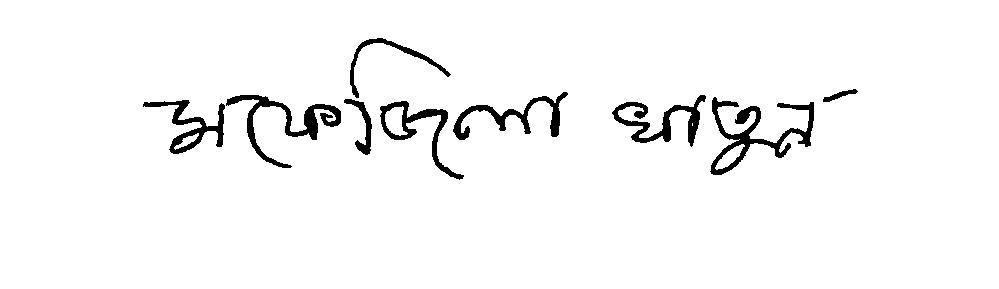 মফেজিলা খাতুন